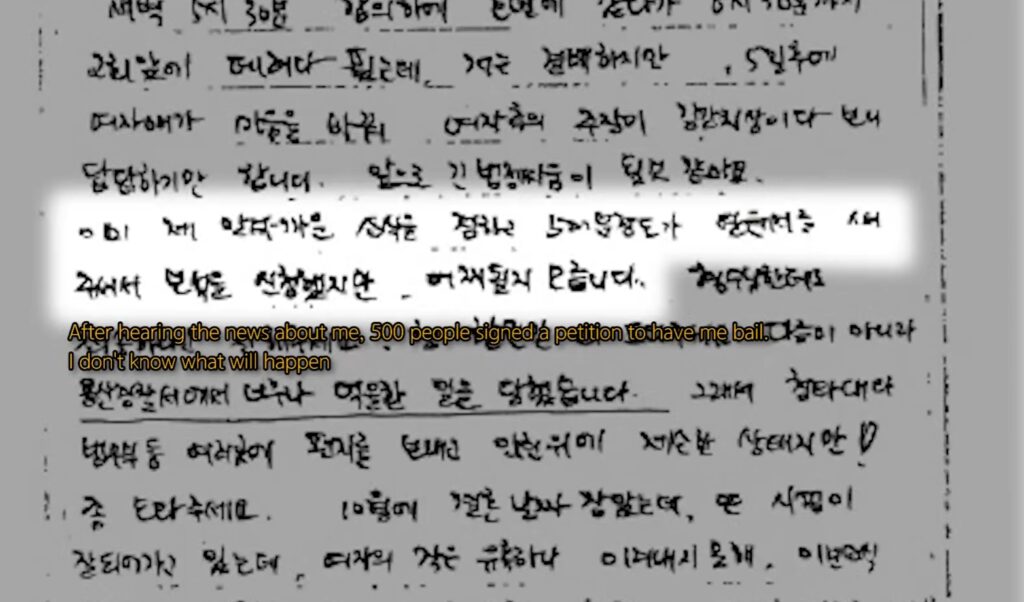 새벽 5시 30분 합의하에 6시 30분까지
교회앞에 데려다 줬는데, 저는 결백하지만, 5일후에
여자애가 마음을 바꿔 여자측의 주장이 강간치상이다 보니
답답하기만 합니다. 앞으로 긴 법정싸움이 될것 같아요.
이미 제 안타까운 소식을 접하고 500분정도가 탄원서를 써
주셔서 보석을 신청했지만, 어찌될지 모릅니다.
After hearing the news about me, 500 people signed a petition to have me bail.
I don't know what will happen
다름이 아니라
용산경찰서에서 너무나 억울한 일을 당했습니다. 그래서
법무부등 여러곳에 편지를 보내고 인권위에 제소한 상태지만
좀 도와주세요. 10월에 결혼 날짜 잡았는데, 또 사업이
잘되어가고 있는데, 여자의 작은 유혹하나 이겨내지 못해,